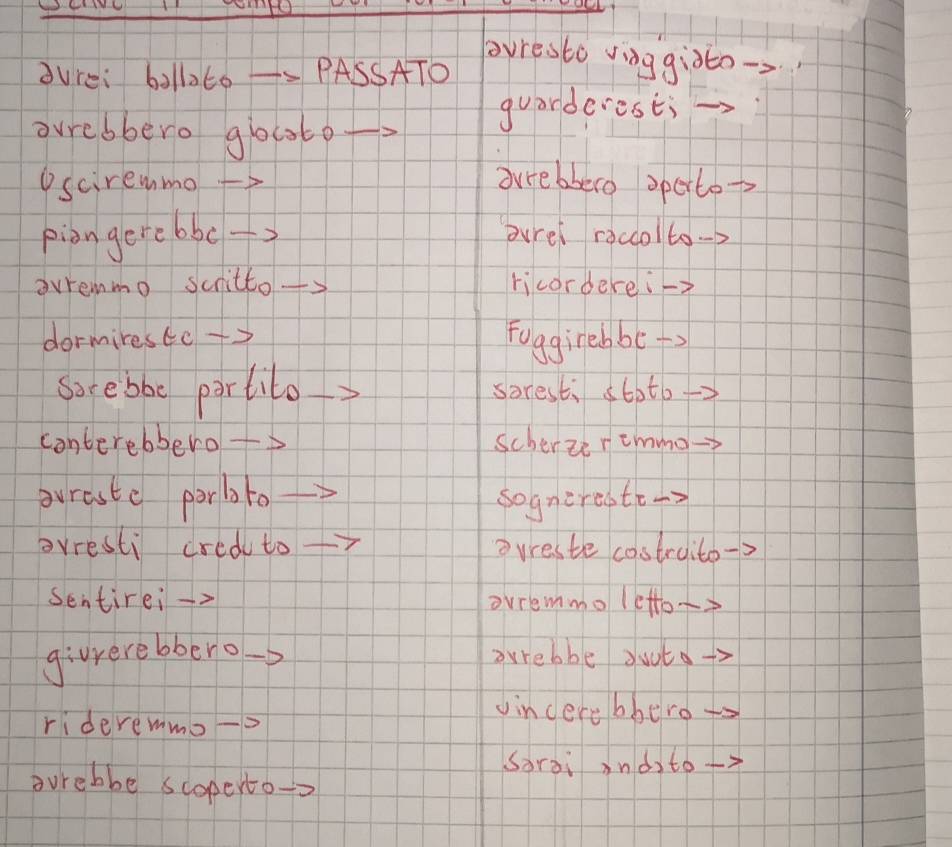 avrei ballato → PASSATO
avrebbero giocato →
Usciremmo →
piangerebbe →
avremmo scritto →
dormireste →
Sarebbe partito →
canterebbero →
avreste parlato →
avresti creduto →
sentirei →
giurerebbero →
rideremmo →
avrebbe scoperto →
avreste viaggiato →
guarderesti →
avrebbero aperto →
avrei raccolto →
ricorderei →
Fuggirebbe →
saresti stato →
scherzeremmo →
sognereste →
avreste costruito →
avremmo letto →
avrebbe avuto →
vincerebbero →
sarai andato →